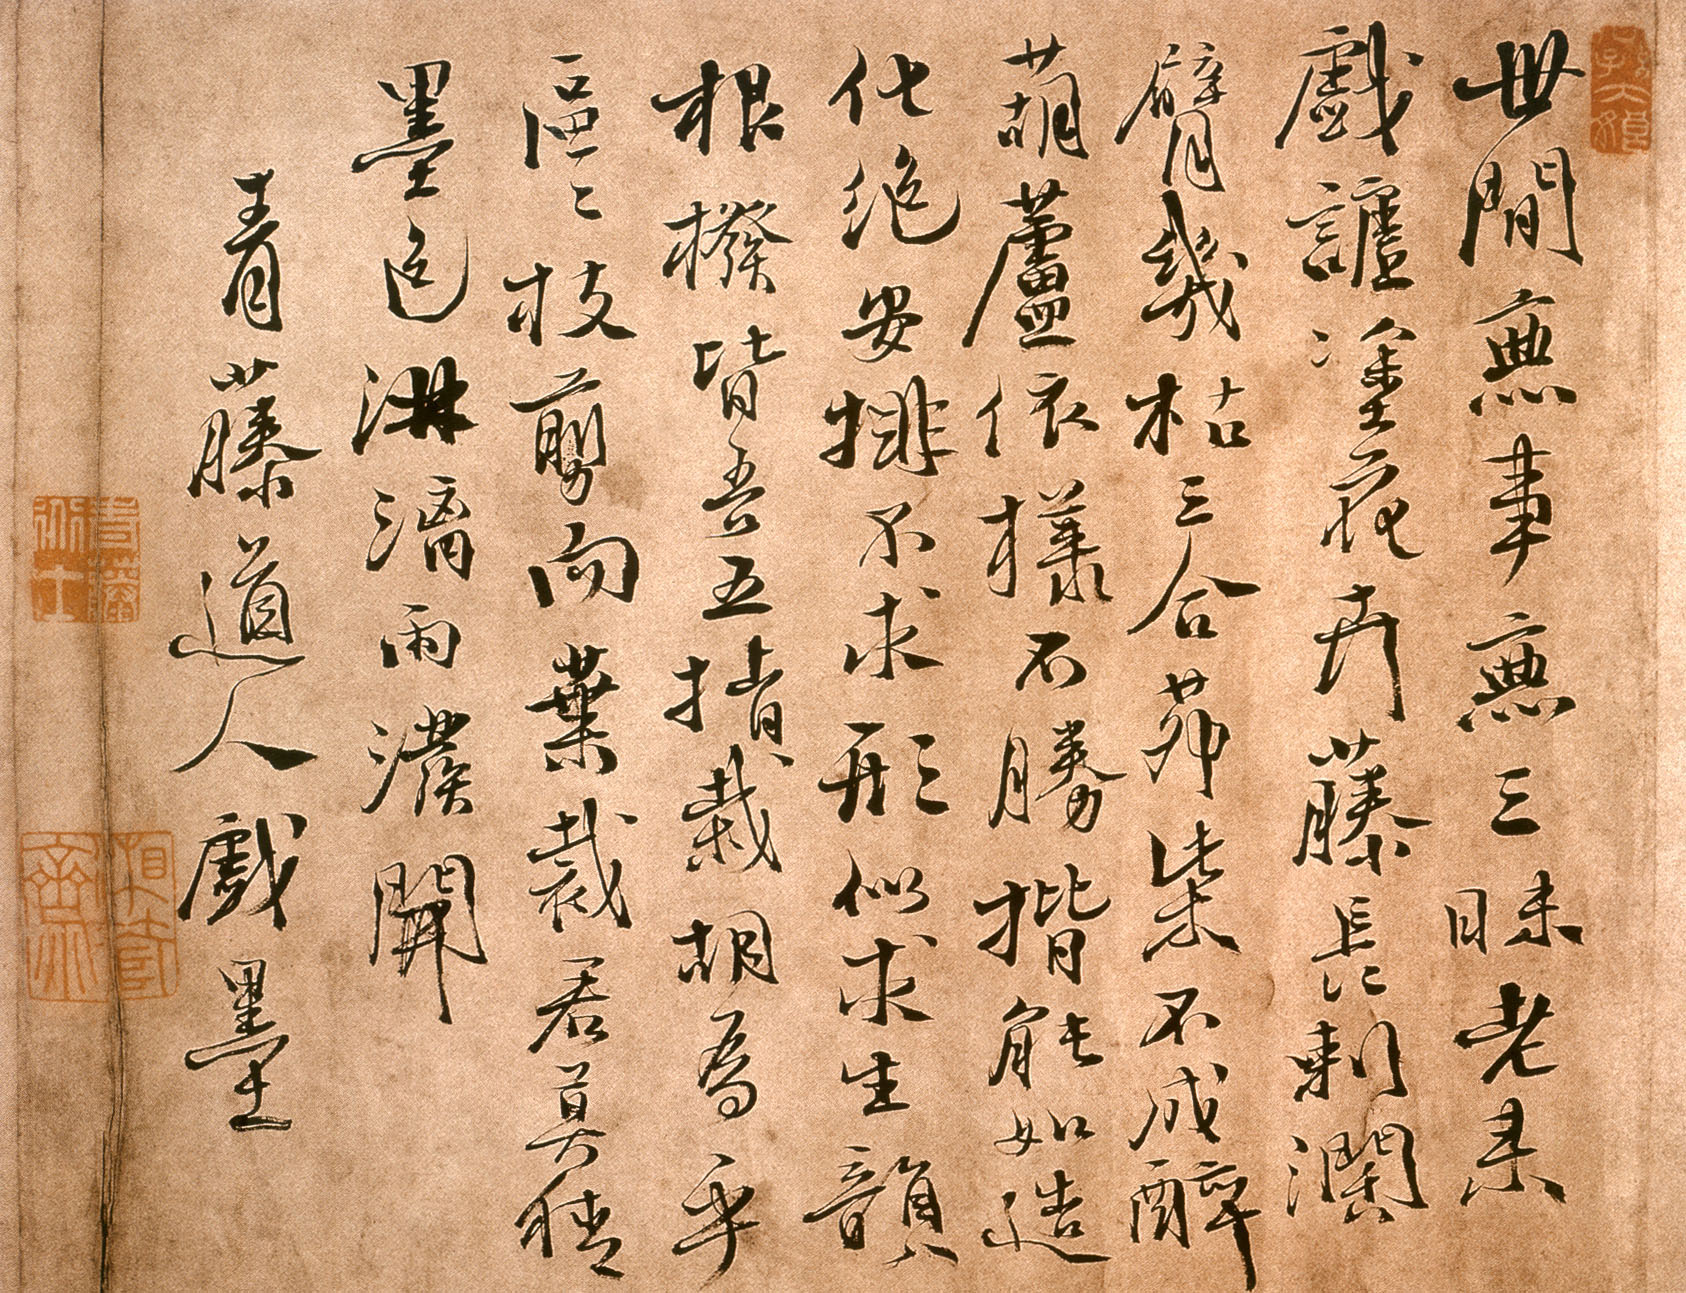 世間無事無三昧老來
戲謔塗花卉藤長刺濶
臂幾枯三合茆柴不成醉
葫蘆依樣不勝揩能如造
化絕安排不求形似求生韻
根撥皆吾五指栽胡為乎
區〻枝剪向葉裁君莫猜
墨色淋漓雨潑開
青藤道人戲墨